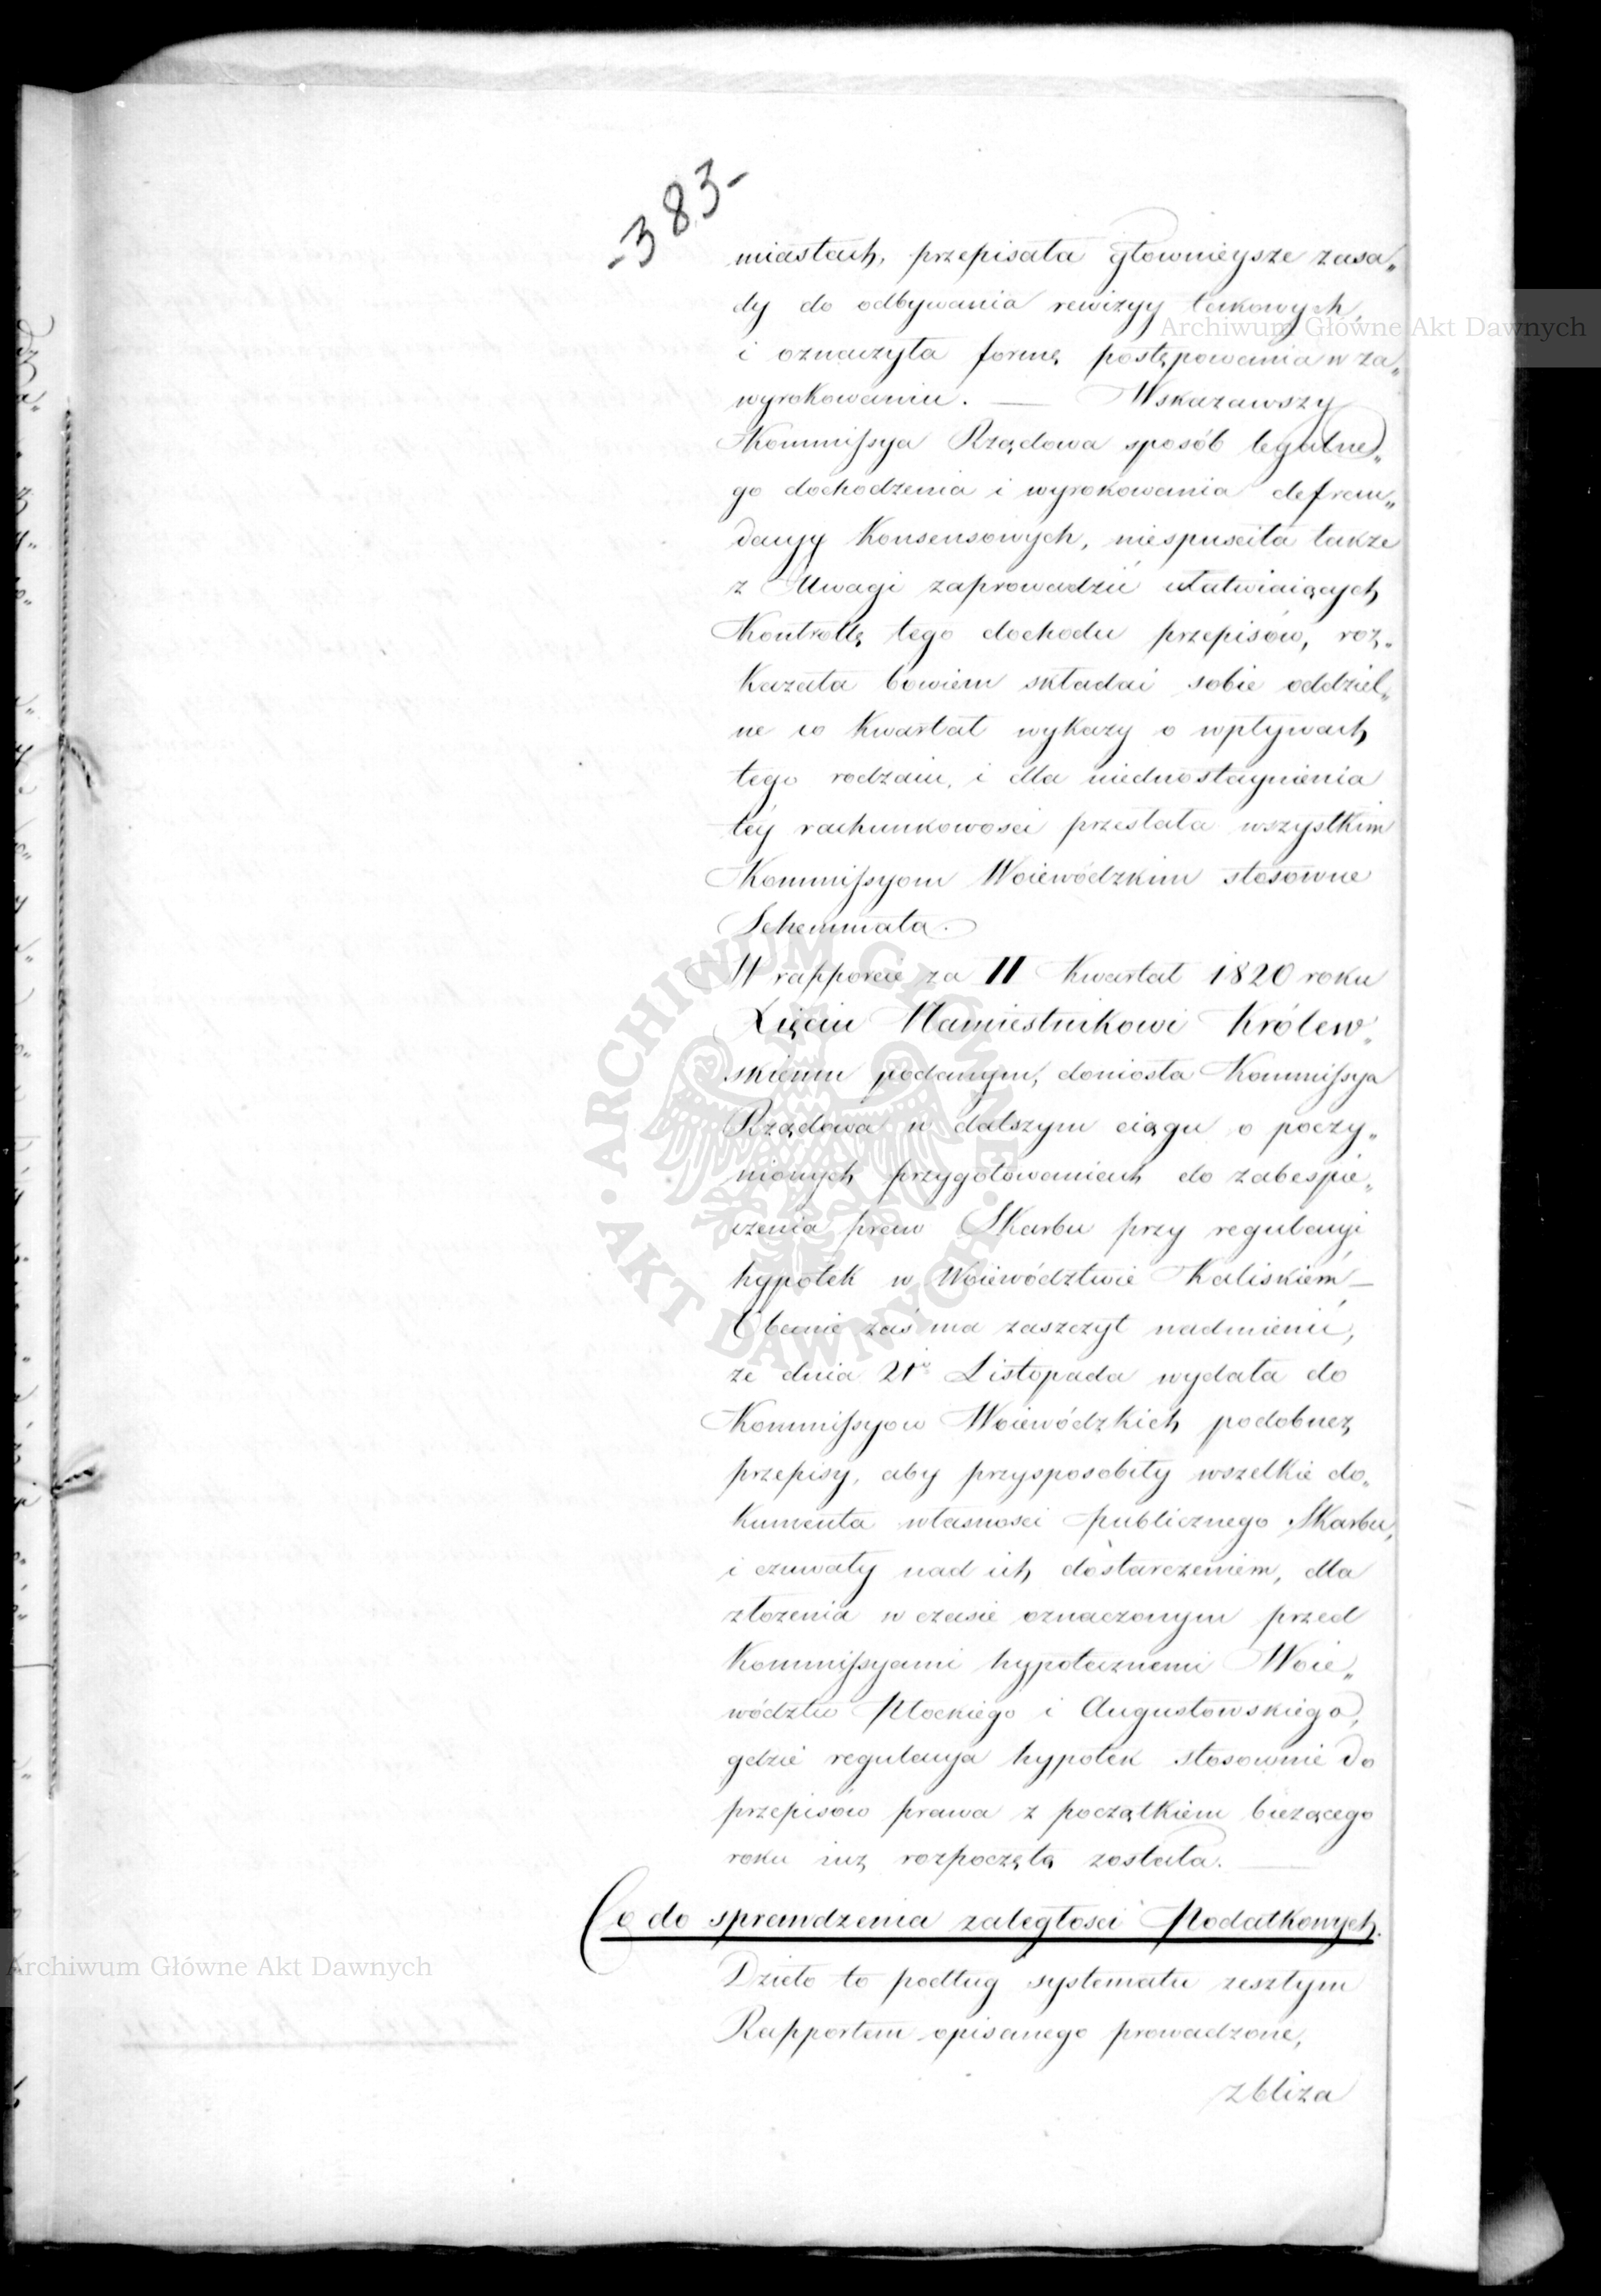 -383-
miastach, przepisała główniejsze zasa„
dy do odbywania rewizyy takowych,
i oznaczyła formę postępowania w za„
wyrokowaniu. — Wskazawszy
Kommissya Rządowa sposób legalne„
go dochodzenia i wyrokowania defrau„
dacyy Konsensowych, niespuściła także
z Uwagi zaprowadzić ułatwiaiących
Kontrollę tego dochodu przepisów, roz„
kazała bowiem składać sobie oddziel„
ne co Kwartał wykazy o wpływach
tego rodzaiu, i dla uiednostaynienia
téy rachunkowości przesłała wszystkim
Kommissyom Woiewódzkim stosowne
Schemmata.
W rapporcie za II Kwartał 1820 roku
Xięciu Namiestnikowi Królew„
skiemu podanym, doniosła Kommissya
Rządowa w dalszym ciągu o poczy„
nionych przygotowaniach do zabespie„
czenia praw Skarbu przy regulacyi
hypotek w Woiewództwie Kaliskiém —
Obecnie zaś ma zaszczyt nadmienić,
że dnia 21º Listopada wydała do
Kommissyow Woiewódzkich podobneż
przepisy, aby przysposobiły wszelkie do„
kumenta własności publicznego Skarbu,
i czuwały nad ich dostarczeniem, dla
złożenia w czasie oznaczonym przed
Kommissyami hypotecznemi Woie„
wództw Płockiego i Augustowskiego,
gdzie regulacya hypotek stosownie do
przepisów prawa z początkiem bieżącego
roku iuż rozpoczętą została. —
Co do sprawdzenia zaległości Podatkowych.
Dzieło to podług systematu zeszłym
Rapportem opisanego prowadzone,
zbliża
Archiwum Główne Akt Dawnych
ARCHIWUM GŁÓWNE • AKT DAWNYCH •
Archiwum Główne Akt Dawnych